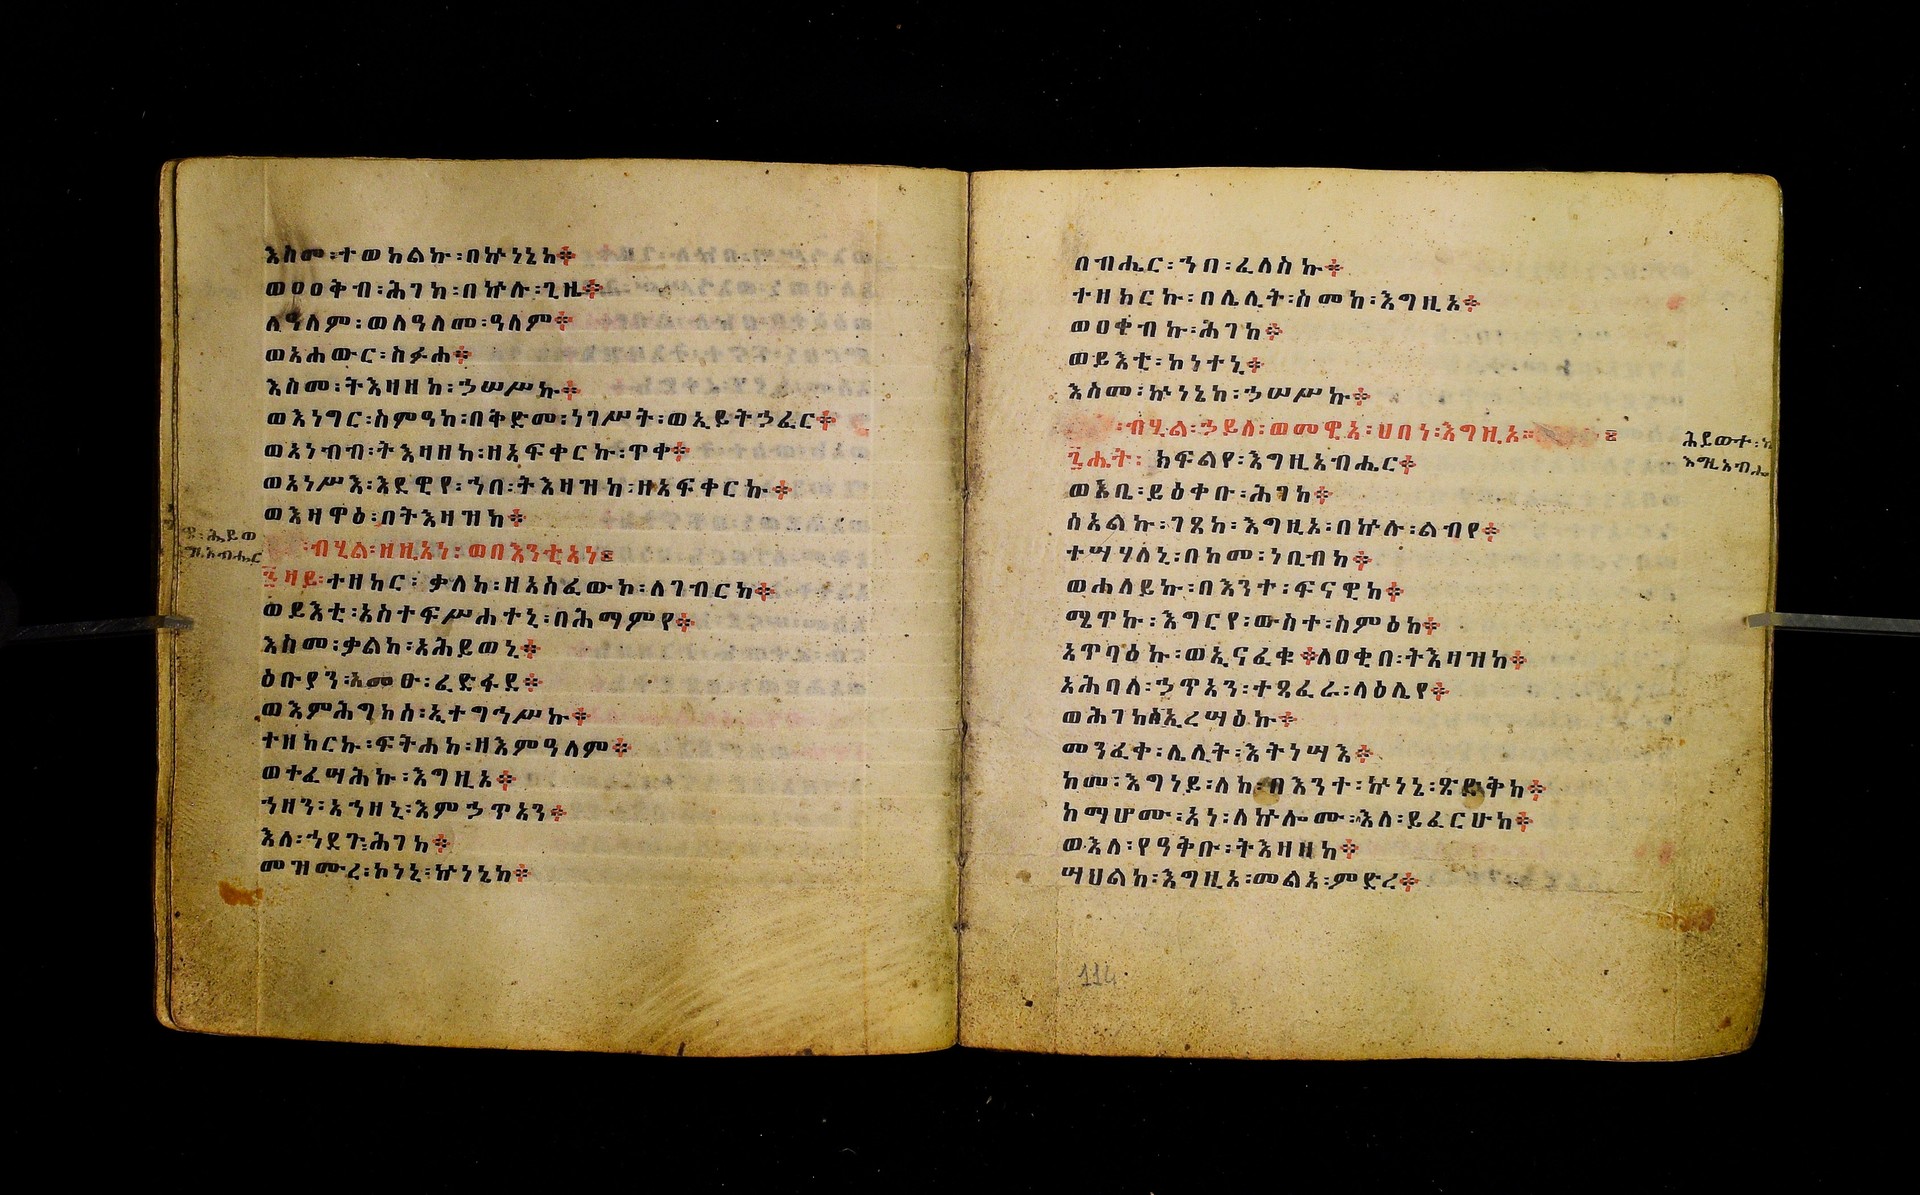 እስመ፡ተወከልኩ፡በኵነኔከ፨
ወዐዐቅብ፡ሕገከ፡በኵሉ፡ጊዜ፨
ለዓለም፡ወለዓለመ፡ዓለም፨
ወአሐውር፡ስፉሐ፨
እስመ፡ትእዛዘከ፡ኃሠሥኩ፨
ወእነግር፡ስምዓከ፡በቅድመ፡ነገሥት፡ወኢይትኃፈር፨
ወአነብብ፡ትእዛዘከ፡ዘአፍቀርኩ፡ጥቀ፨
ወአነሥእ፡እደዊየ፡ኀበ፡ትእዛዝከ፡ዘአፍቀርኩ፨
ወእዛዋዕ፡በትእዛዝከ፨
ብሂል፡ዘዚአነ፡ወበእንቲአነ፨
፯ዛይ፡ተዘከር፡ቃለከ፡ዘአስፈውከ፡ለገብርከ፨
ወይእቲ፡አስተፍሥሐተኒ፡በሕማምየ፨
እስመ፡ቃልከ፡አሕይወኒ፨
ዕቡያን፡አመፁ፡ፈድፋደ፨
ወእምሕግከሰ፡ኢተግኅሥኩ፨
ተዘከርኩ፡ፍትሐከ፡ዘእምዓለም፨
ወተፈሣሕኩ፡እግዚአ፨
ኀዘን፡አኀዘኒ፡እምኃጥአን፨
እለ፡ኀደጉ፡ሕገከ፨
መዝሙረ፡ኮነኒ፡ኵነኔከ፨
በብሔር፡ኀበ፡ፈለስኩ፨
ተዘከርኩ፡በሌሊት፡ስመከ፡እግዚአ፨
ወዐቀብኩ፡ሕገከ፨
ወይእቲ፡ኮነተኒ፨
እስመ፡ኵነኔከ፡ኃሠሥኩ፨
፡ብሂል፡ኃይለ፡ወመዊአ፡ሀበነ፡እግዚአ፨
ሕይወተ፡
እግዚአብሔ
፰ሔት፡ክፍልየ፡እግዚአብሔር፨
ወእቤ፡ይዕቀቡ፡ሕገከ፨
ሰአልኩ፡ገጸከ፡እግዚአ፡በኵሉ፡ልብየ፨
ተሣሃለኒ፡በከመ፡ነቢብከ፨
ወሐለይኩ፡በእንተ፡ፍናዊከ፨
ሜጥኩ፡እግርየ፡ውስተ፡ስምዕከ፨
አጥባዕኩ፡ወኢናፈቁ፨ለዐቂበ፡ትእዛዝከ፨
አሕባለ፡ኃጥአን፡ተጸፈራ፡ላዕሌየ፨
ወሕገከሰ፡ኢረሣዕኩ፨
መንፈቀ፡ሌሊት፡እትነሣእ፨
ከመ፡እግነይ፡ለከ፡በእንተ፡ኵነኔ፡ጽድቅከ፨
ከማሆሙ፡አነ፡ለኵሎሙ፡እለ፡ይፈርሁከ፨
ወእለ፡የዓቅቡ፡ትእዛዘከ፨
ሣህልከ፡እግዚአ፡መልአ፡ምድረ፨
114